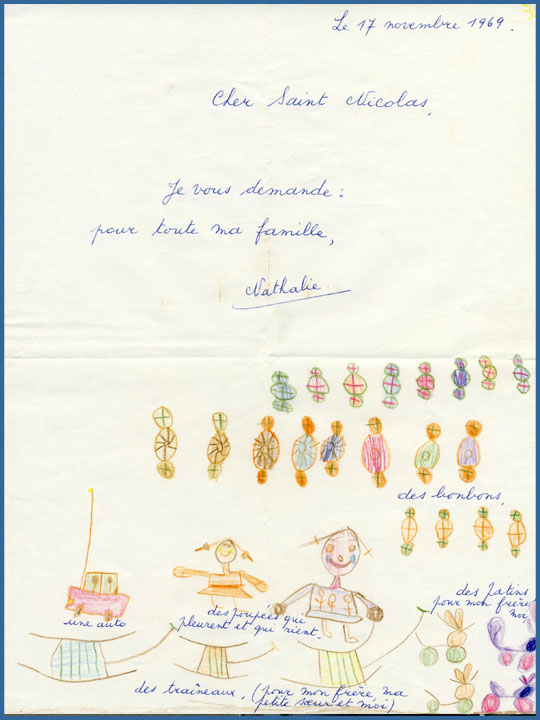 Le 17 novembre 1969.
Cher Saint Nicolas,
Je vous demande :
pour toute ma famille,
Nathalie.
des bonbons,
des patins
pour mon frère
moi
une auto
des poupées qui
pleurent et qui rient
des traîneaux, (pour mon frère, ma
petite sœur et moi)